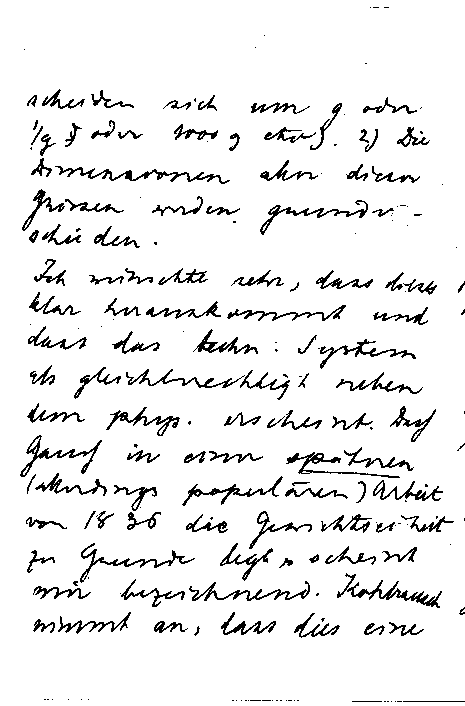 scheiden sich um g oder
1/g oder 1000 g etc}. 2) Die
Dimensionen aber dieser
Grössen werden
schieden.
Ich wünschte sehr, dass dieses
klar herauskommt und
dass das techn. System
als gleichberechtigt neben
dem phys. erscheint. Dass
Gauss in einer späteren
(allerdings populären) Arbeit
von 1836 die Gewichtseinheit
zu Grunde legt, scheint
mir bezeichnend. Kohlrausch
nimmt an, dass dies eine